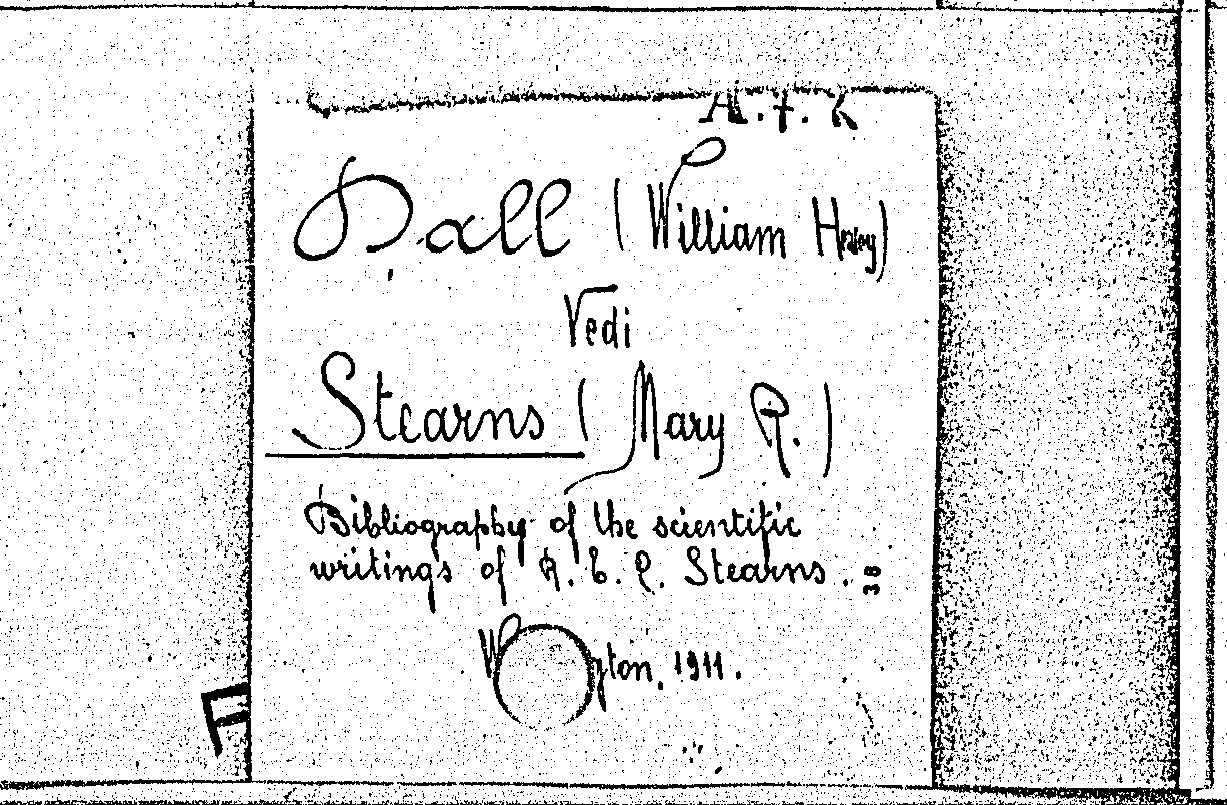 Dall (William
Vedi
Stearns (Mary R.)
Bibliography of the scientific
writings of R. E. C. Stearns.
38
1911.
F